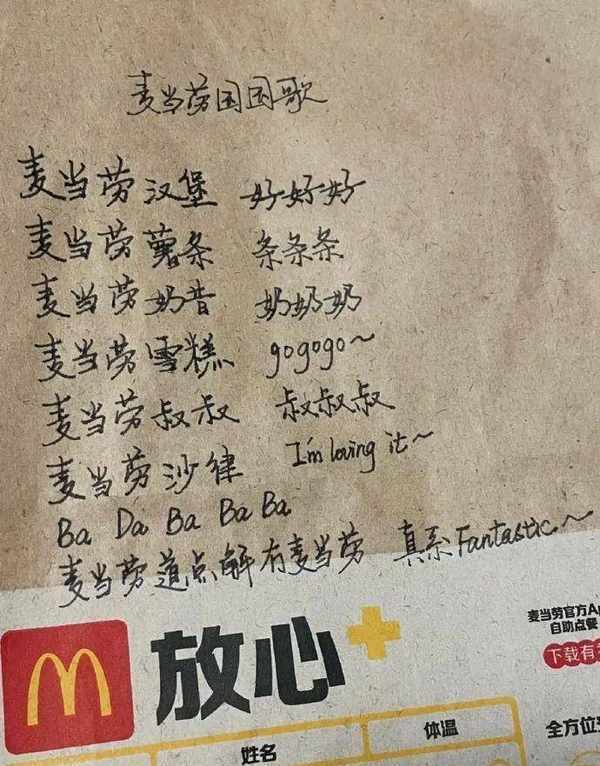 麦当劳国国歌
麦当劳汉堡 好好好
麦当劳薯条 条条条
麦当劳奶昔 奶奶奶
麦当劳雪糕 gogogo~
麦当劳叔叔 叔叔叔
麦当劳沙律 I'm loving it~
Ba Da Ba Ba Ba
麦当劳道点解有麦当劳 真系Fantastic~
麦当劳官方Ap
自助点餐
下载有
放心+
姓名
体温
全方位